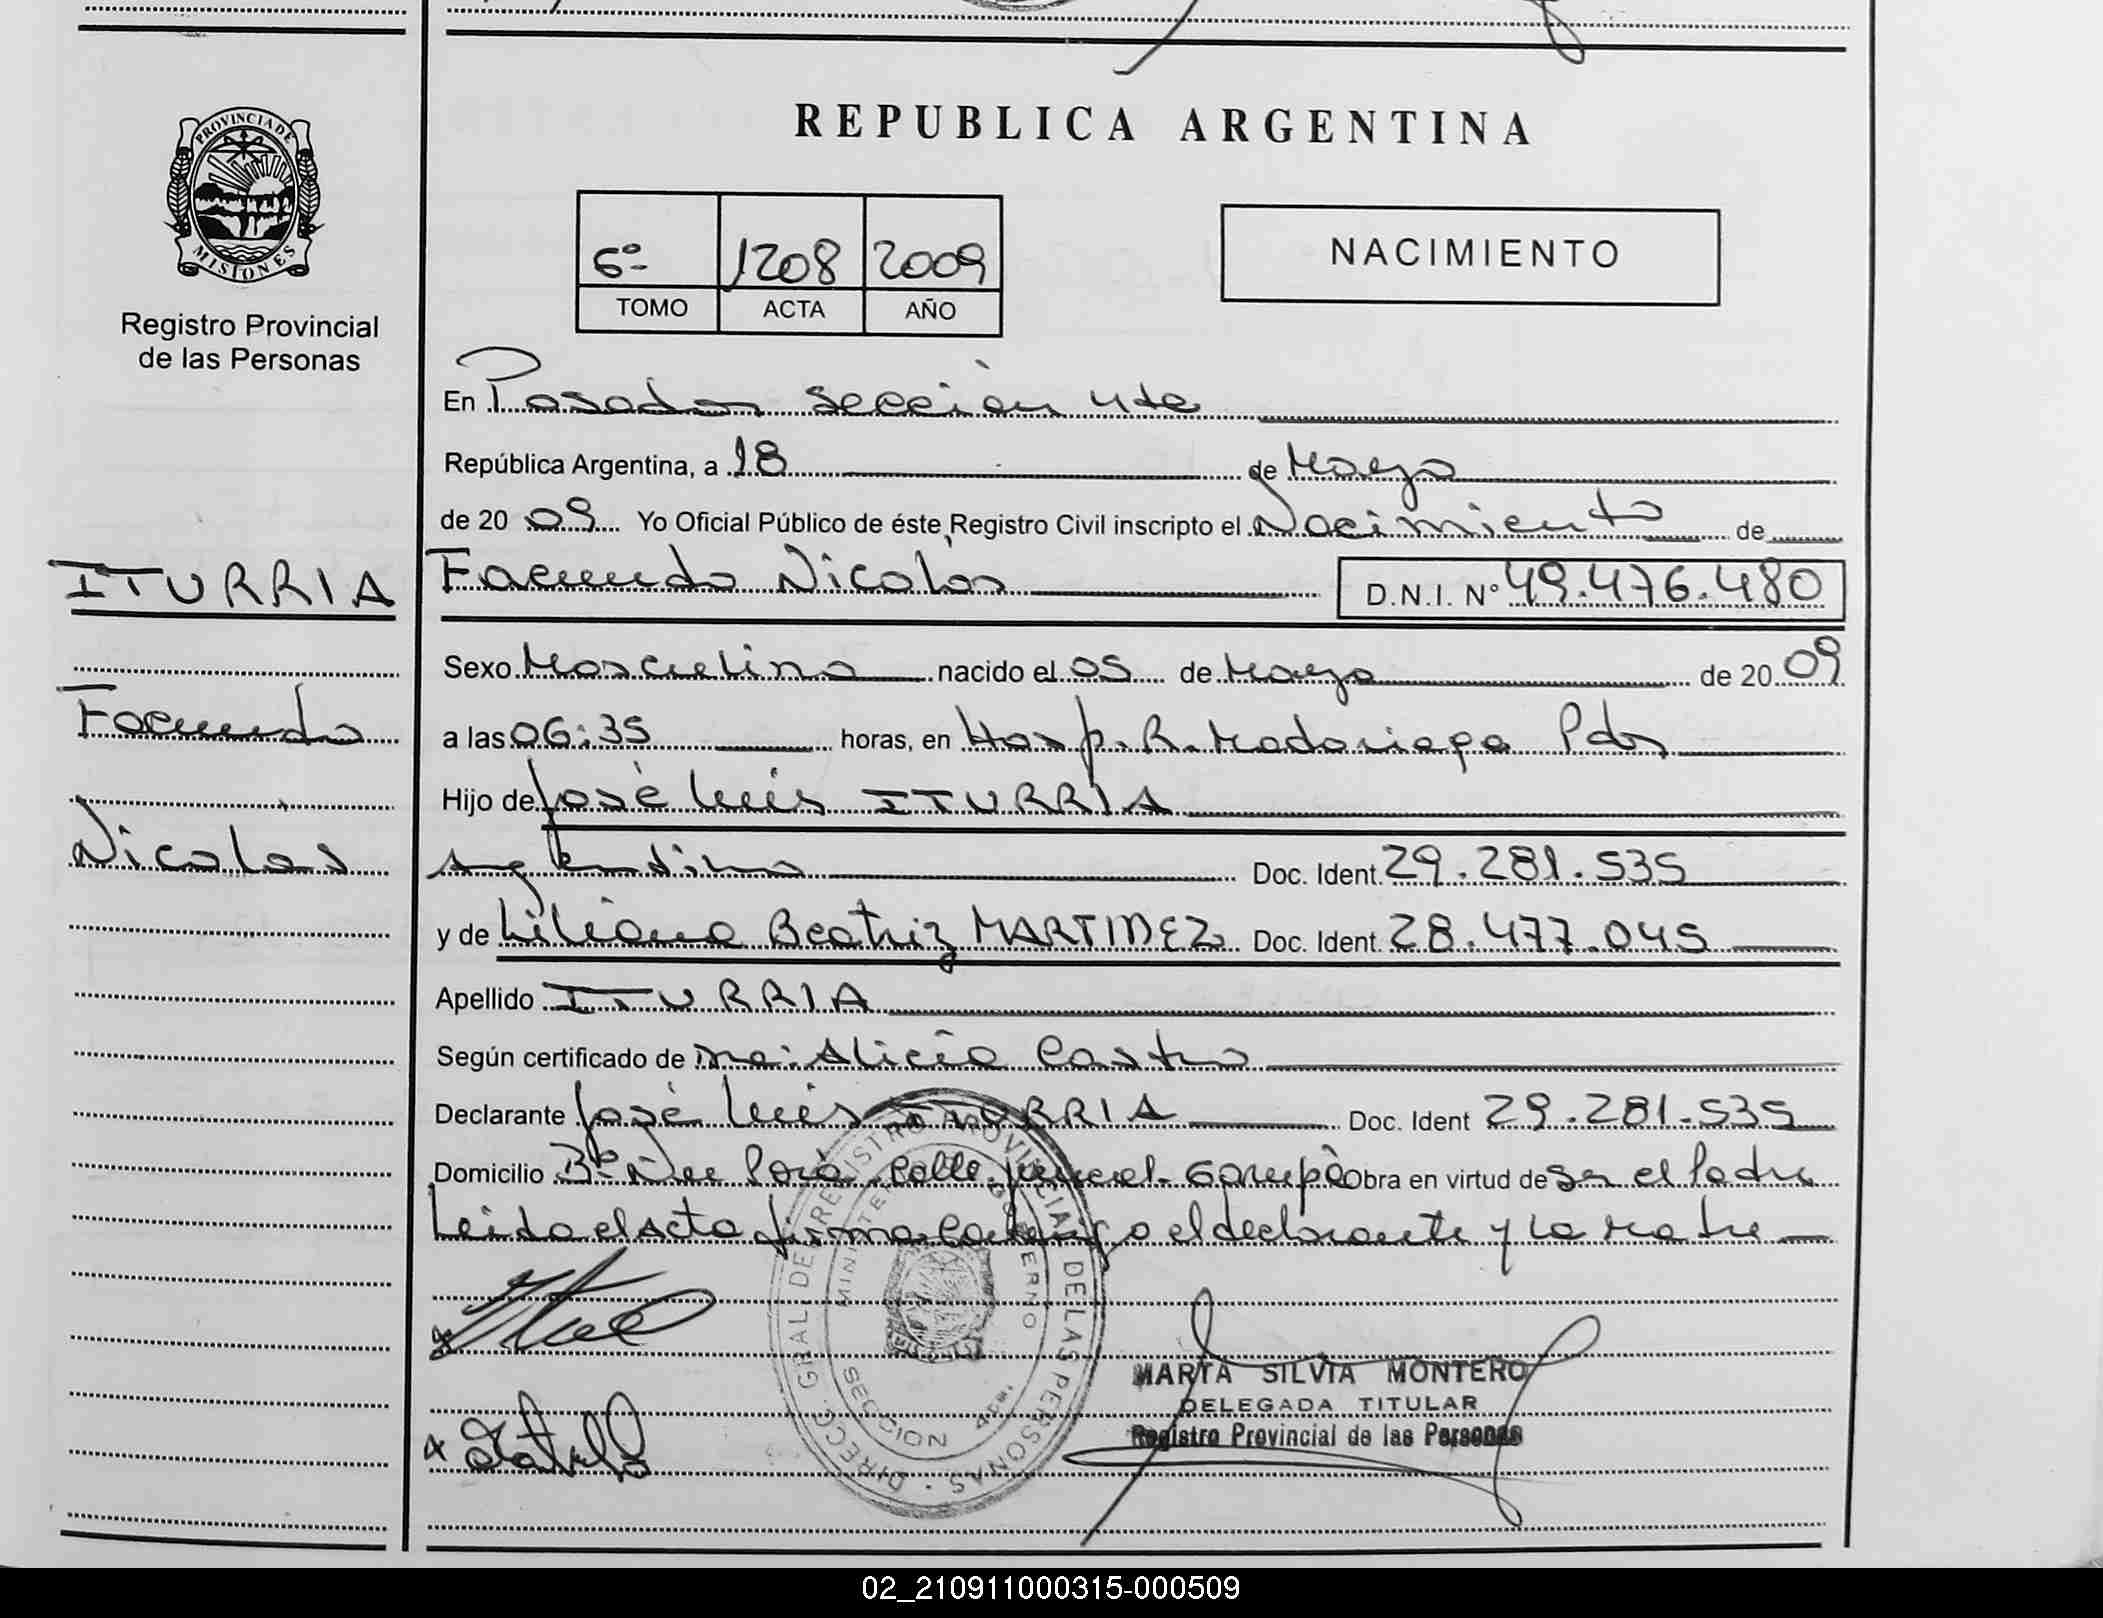 REPUBLICA ARGENTINA
PROVINCIA DE
MISIONES
Registro Provincial
de las Personas
6º 1208 2009
TOMO ACTA AÑO
NACIMIENTO
En Posadas sección 4ta
República Argentina, a 18 de Mayo
de 20 09 Yo Oficial Público de éste Registro Civil inscripto el Nacimiento de
ITURRIA
Facundo
Nicolas
Facundo Nicolás D.N.I. Nº 49.476.480
Sexo Masculino nacido el 05 de Mayo de 20 09
a las 06:35 horas, en Hosp. R. Madariaga Pdas
Hijo de José Luis ITURRIA
Argentino Doc. Ident. 29.281.535
y de Liliana Beatriz MARTINEZ Doc. Ident. 28.477.045
Apellido ITURRIA
Según certificado de Dra. Alicia Castro
Declarante José Luis ITURRIA Doc. Ident 29.281.535
Domicilio Bº Ñu Porá calle Garupá Obra en virtud de ser el Padre
Leida el acta firma conmigo el declarante y la madre
DIRECC. GRAL DE REGISTRO PROVINCIAL DE LAS PERSONAS
MINISTERIO GOBIERNO
SECCION 4ta.
MARTA SILVIA MONTERO
DELEGADA TITULAR
Registro Provincial de las Personas
02_210911000315-000509